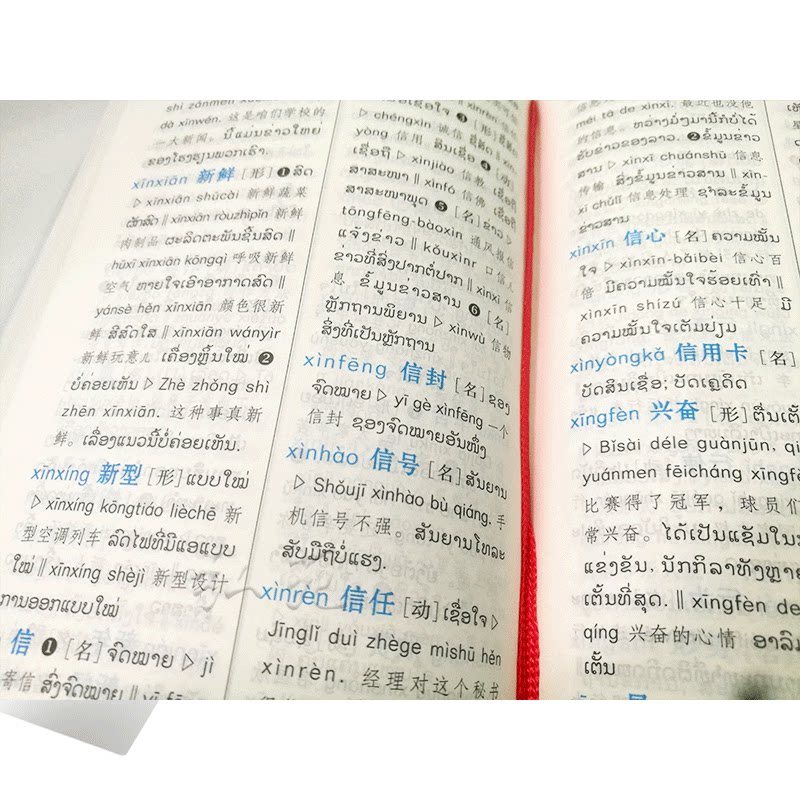 shì zánmen xué
dà xīnwén. 这是咱们学校的
一大新闻。ນີ້ແມ່ນຂ່າວໃຫຍ່
ຂອງໂຮງຮຽນພວກເຮົາ.
xīnxiān 新鲜 [形] ❶ສົດ
▷ xīnxiān shūcài 新鲜蔬菜
ຜັກສົດ ‖ xīnxiān ròuzhìpǐn 新鲜
肉制品 ຜະລິດຕະພັນຊີ້ນສົດ ‖
hūxī xīnxiān kōngqì 呼吸新鲜
空气 ຫາຍໃຈເອົາອາກາດສົດ ‖
yánsè hěn xīnxiān 颜色很新
鲜 ສີສົດໃສ ‖ xīnxiān wányìr
新鲜玩意儿 ເຄື່ອງຫຼິ້ນໃໝ່ ❷
ບໍ່ຄ່ອຍເຫັນ ▷ Zhè zhǒng shì
zhēn xīnxiān. 这种事真新
鲜。ເລື່ອງແນວນີ້ບໍ່ຄ່ອຍເຫັນ.
xīnxíng 新型 [形] ແບບໃໝ່
▷ xīnxíng kōngtiáo lièchē 新
型空调列车 ລົດໄຟທີ່ມີແອແບບ
ໃໝ່ ‖ xīnxíng shèjì 新型设计
ການອອກແບບໃໝ່
信 ❶ [名] ຈົດໝາຍ ▷ jì
寄信 ສົ່ງຈົດໝາຍ ‖ yī fēng
ເຊື່ອໃຈ ❸ [形]
▷ chéngxìn 诚信
yòng 信用 ສິນເຊື່ອ ❹ [动]
ເຊື່ອຖື ▷ xìnjiào 信教
ສາສະໜາ ‖ xìnfó 信佛
ສາສະໜາພຸດ ❺ [名] ຂ່າວ ▷
tōngfēng-bàoxìn 通风报信
ແຈ້ງຂ່າວ ‖ kǒuxìnr 口信儿
ຂ່າວທີ່ສົ່ງປາກຕໍ່ປາກ ‖ xìnxī 信
息 ຂໍ້ມູນຂ່າວສານ ❻ [名]
ຫຼັກຖານພິຍານ ▷ xìnwù 信物
ສິ່ງທີ່ເປັນຫຼັກຖານ
xìnfēng 信封 [名] ຊອງ
ຈົດໝາຍ ▷ yī gè xìnfēng 一个
信封 ຊອງຈົດໝາຍອັນໜຶ່ງ
xìnhào 信号 [名] ສັນຍານ
▷ Shǒujī xìnhào bù qiáng. 手
机信号不强。ສັນຍານໂທລະ
ສັບມືຖືບໍ່ແຮງ.
xìnrèn 信任 [动] ເຊື່ອໃຈ ▷
Jīnglǐ duì zhège mìshū hěn
xìnrèn. 经理对这个秘书
méi tā de xìnxī. 最近也没他
的信息。ຫວ່າງມໍ່ໆມານີ້ກໍບໍ່ໄດ້
ຮັບຂ່າວຂອງລາວ. ❷ຂໍ້ມູນຂ່າວ
ສານ ▷ xìnxī chuánshū 信息
传输 ສົ່ງຂໍ້ມູນຂ່າວສານ ‖ xìn-
xī chǔlǐ 信息处理 ຊຳລະຂໍ້ມູນ
ຂ່າວສານ
xìnxīn 信心 [名] ຄວາມໝັ້ນ
ໃຈ ▷ xìnxīn-bǎibèi 信心百
倍 ມີຄວາມໝັ້ນໃຈຮ້ອຍເທົ່າ ‖
xìnxīn shízú 信心十足 ມີ
ຄວາມໝັ້ນໃຈເຕັມປ່ຽມ
xìnyòngkǎ 信用卡 [名]
ບັດສິນເຊື່ອ; ບັດເຄຼດິດ
xīngfèn 兴奋 [形] ຕື່ນເຕັ້ນ
▷ Bǐsài déle guànjūn, qiú
yuánmen fēicháng xīngfèn
比赛得了冠军，球员们
常兴奋。ໄດ້ເປັນແຊັມໃນ
ແຂ່ງຂັນ, ນັກກິລາທັງຫຼາຍ
ເຕັ້ນທີ່ສຸດ. ‖ xīngfèn de
qíng 兴奋的心情 ອາລົມ
ເຕັ້ນ